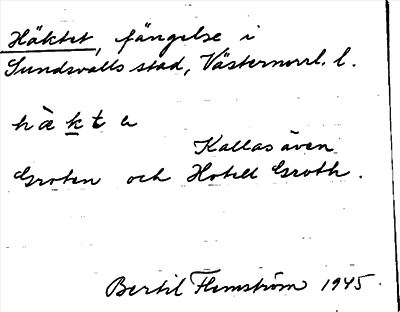 Häktet, fängelse i
Sundsvalls stad, Västernorrl. l.
hàk̲te
Kallas även
Groten och Hotell Groth.
Bertil Flemström 1945.